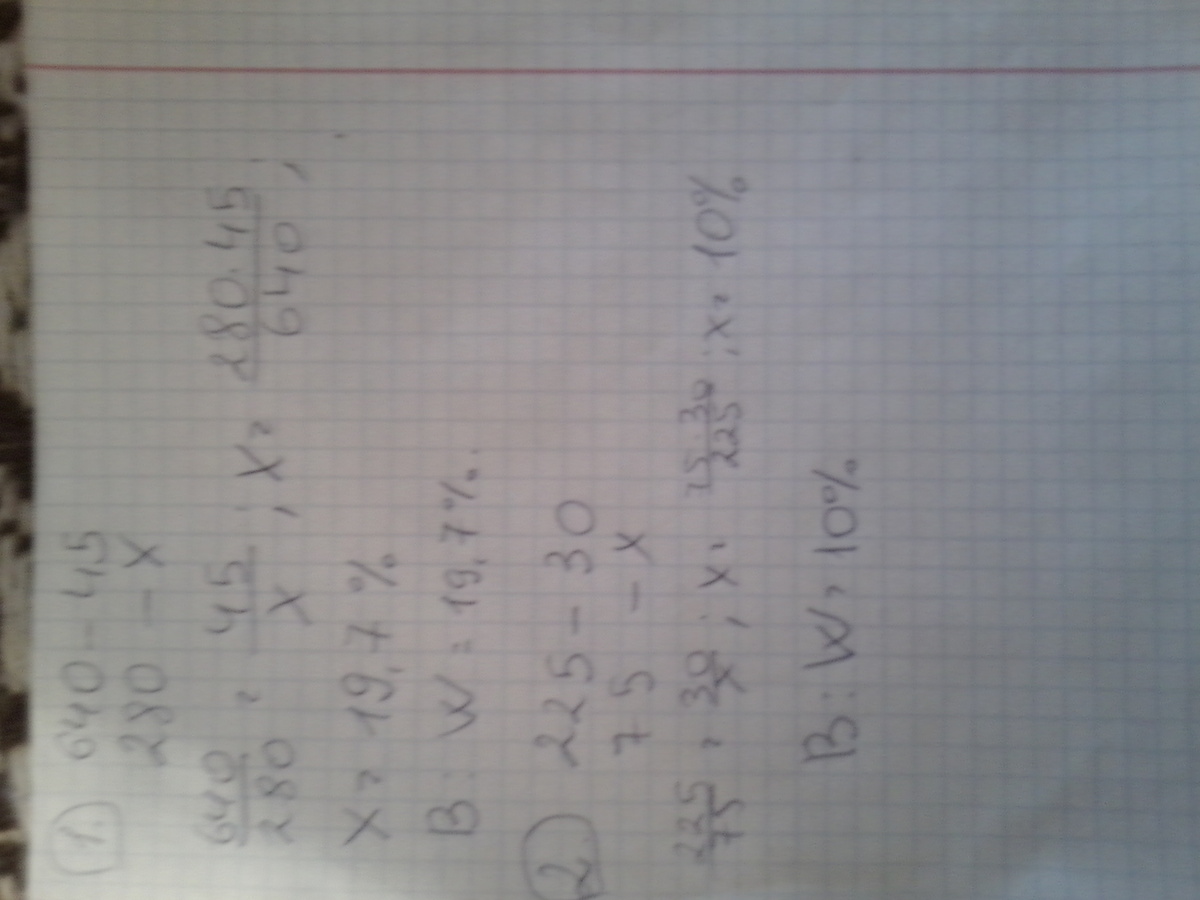 1. 640 – 45
280 – x
640/280 = 45/x ; x = 280·45/640 ;
x = 19,7 %
В: W = 19,7%.
2 225 – 30
75 – x
225/75 = 30/x ; x = 75·30/225 ; x = 10%
В: W = 10%